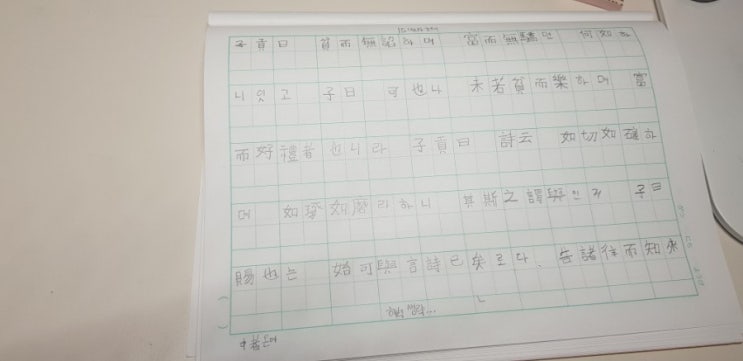 子貢曰 貧而無諂하며 富而無驕면 何如하
니잇고 子曰 可也나 未若貧而樂하며 富
而好禮者也니라 子貢曰 詩云 如切如磋하
며 如琢如磨라하니 其斯之謂與인저 子曰
賜也는 始可與言詩已矣로다. 告諸往而知來